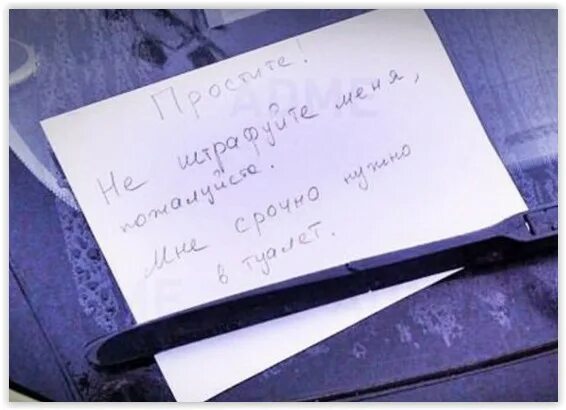 Простите!
Не штрафуйте меня,
пожалуйста.
Мне срочно нужно
в туалет.
ADME
ADME